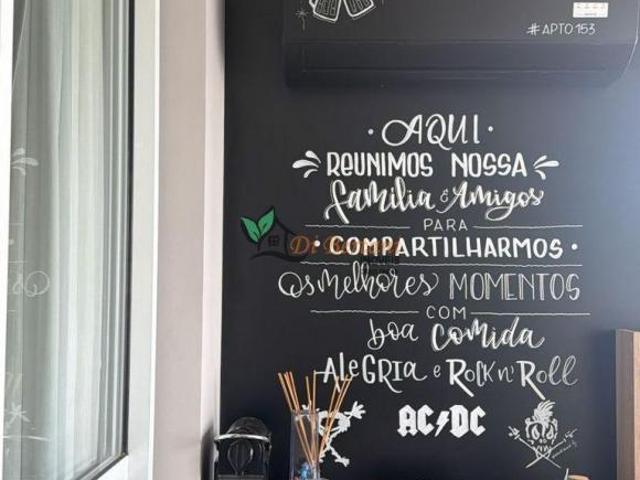 #APTO153
AQUI
REUNIMOS NOSSA
família & Amigos
PARA
COMPARTILHARMOS
Os melhores MOMENTOS
COM
boa comida
ALEGRIA e ROCK n' ROLL
AC DC